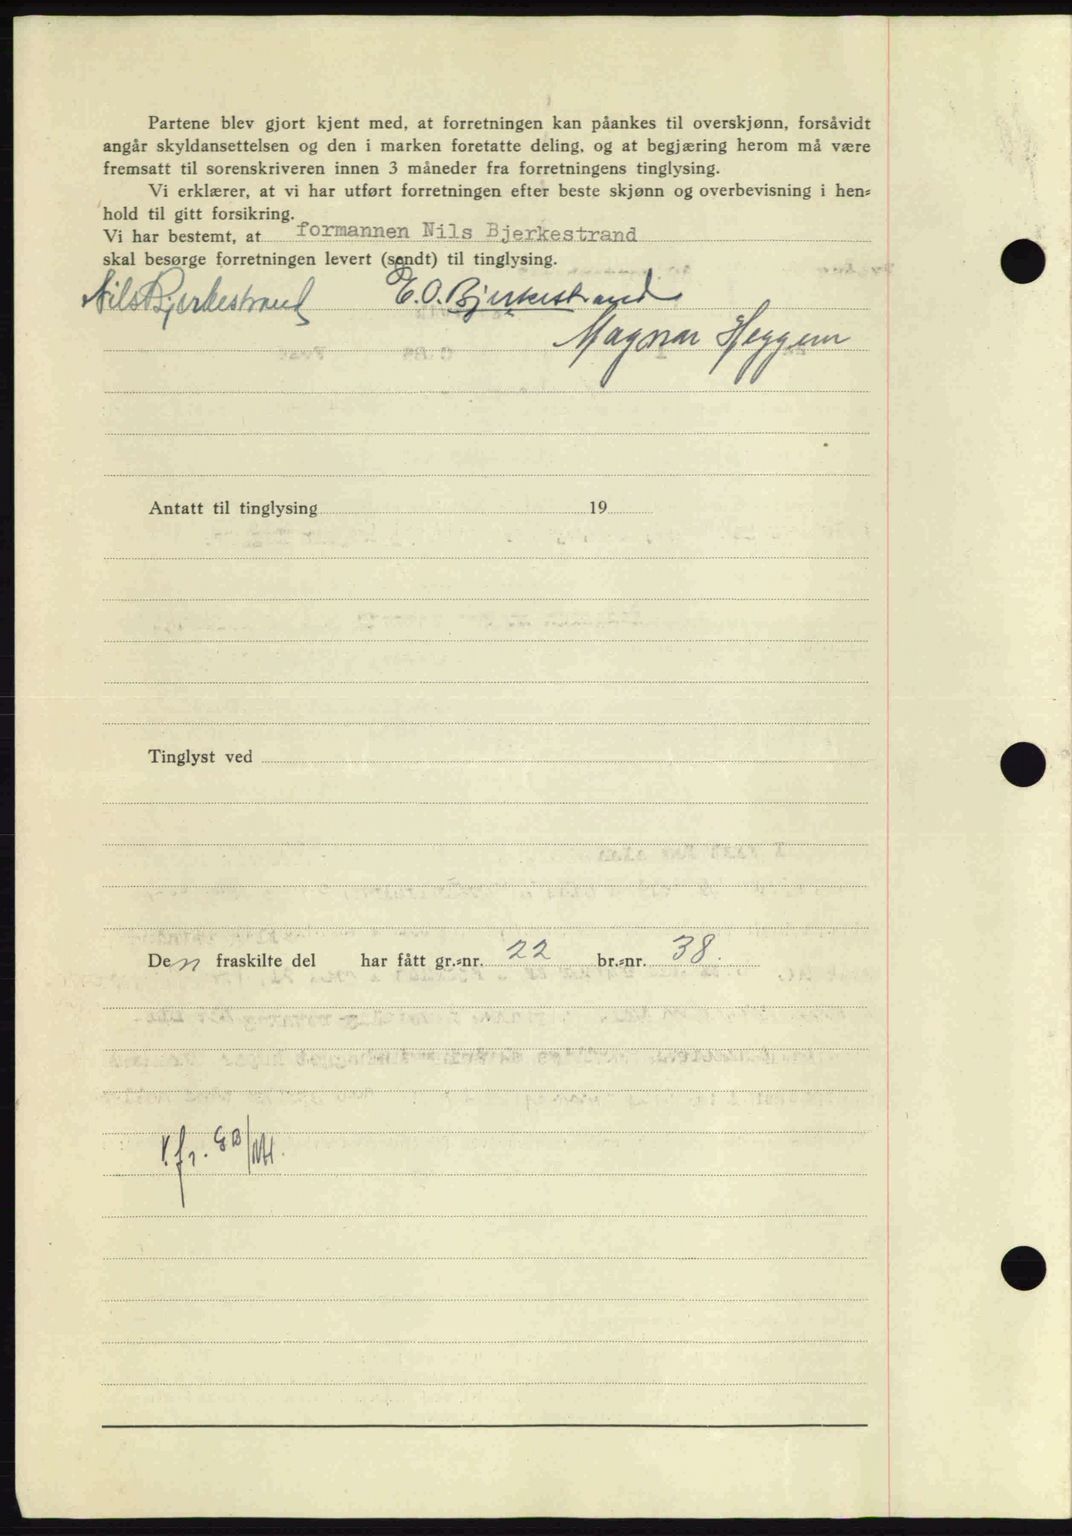 Partene blev gjort kjent med, at forretningen kan påankes til overskjønn, forsåvidt
angår skyldansettelsen og den i marken foretatte deling, og at begjæring herom må være
fremsatt til sorenskriveren innen 3 måneder fra forretningens tinglysing.
Vi erklærer, at vi har utført forretningen efter beste skjønn og overbevisning i hen-
hold til gitt forsikring.
Vi har bestemt, at formannen Nils Bjerkestrand
skal besørge forretningen levert (sendt) til tinglysing.
Nils Bjerkestrand E. O. Bjerkestrand
Magnar Heggem
Antatt til tinglysing 19
Tinglyst ved
Den fraskilte del har fått gr.-nr. 22 br.-nr. 38.
V.fr. GB/MH.